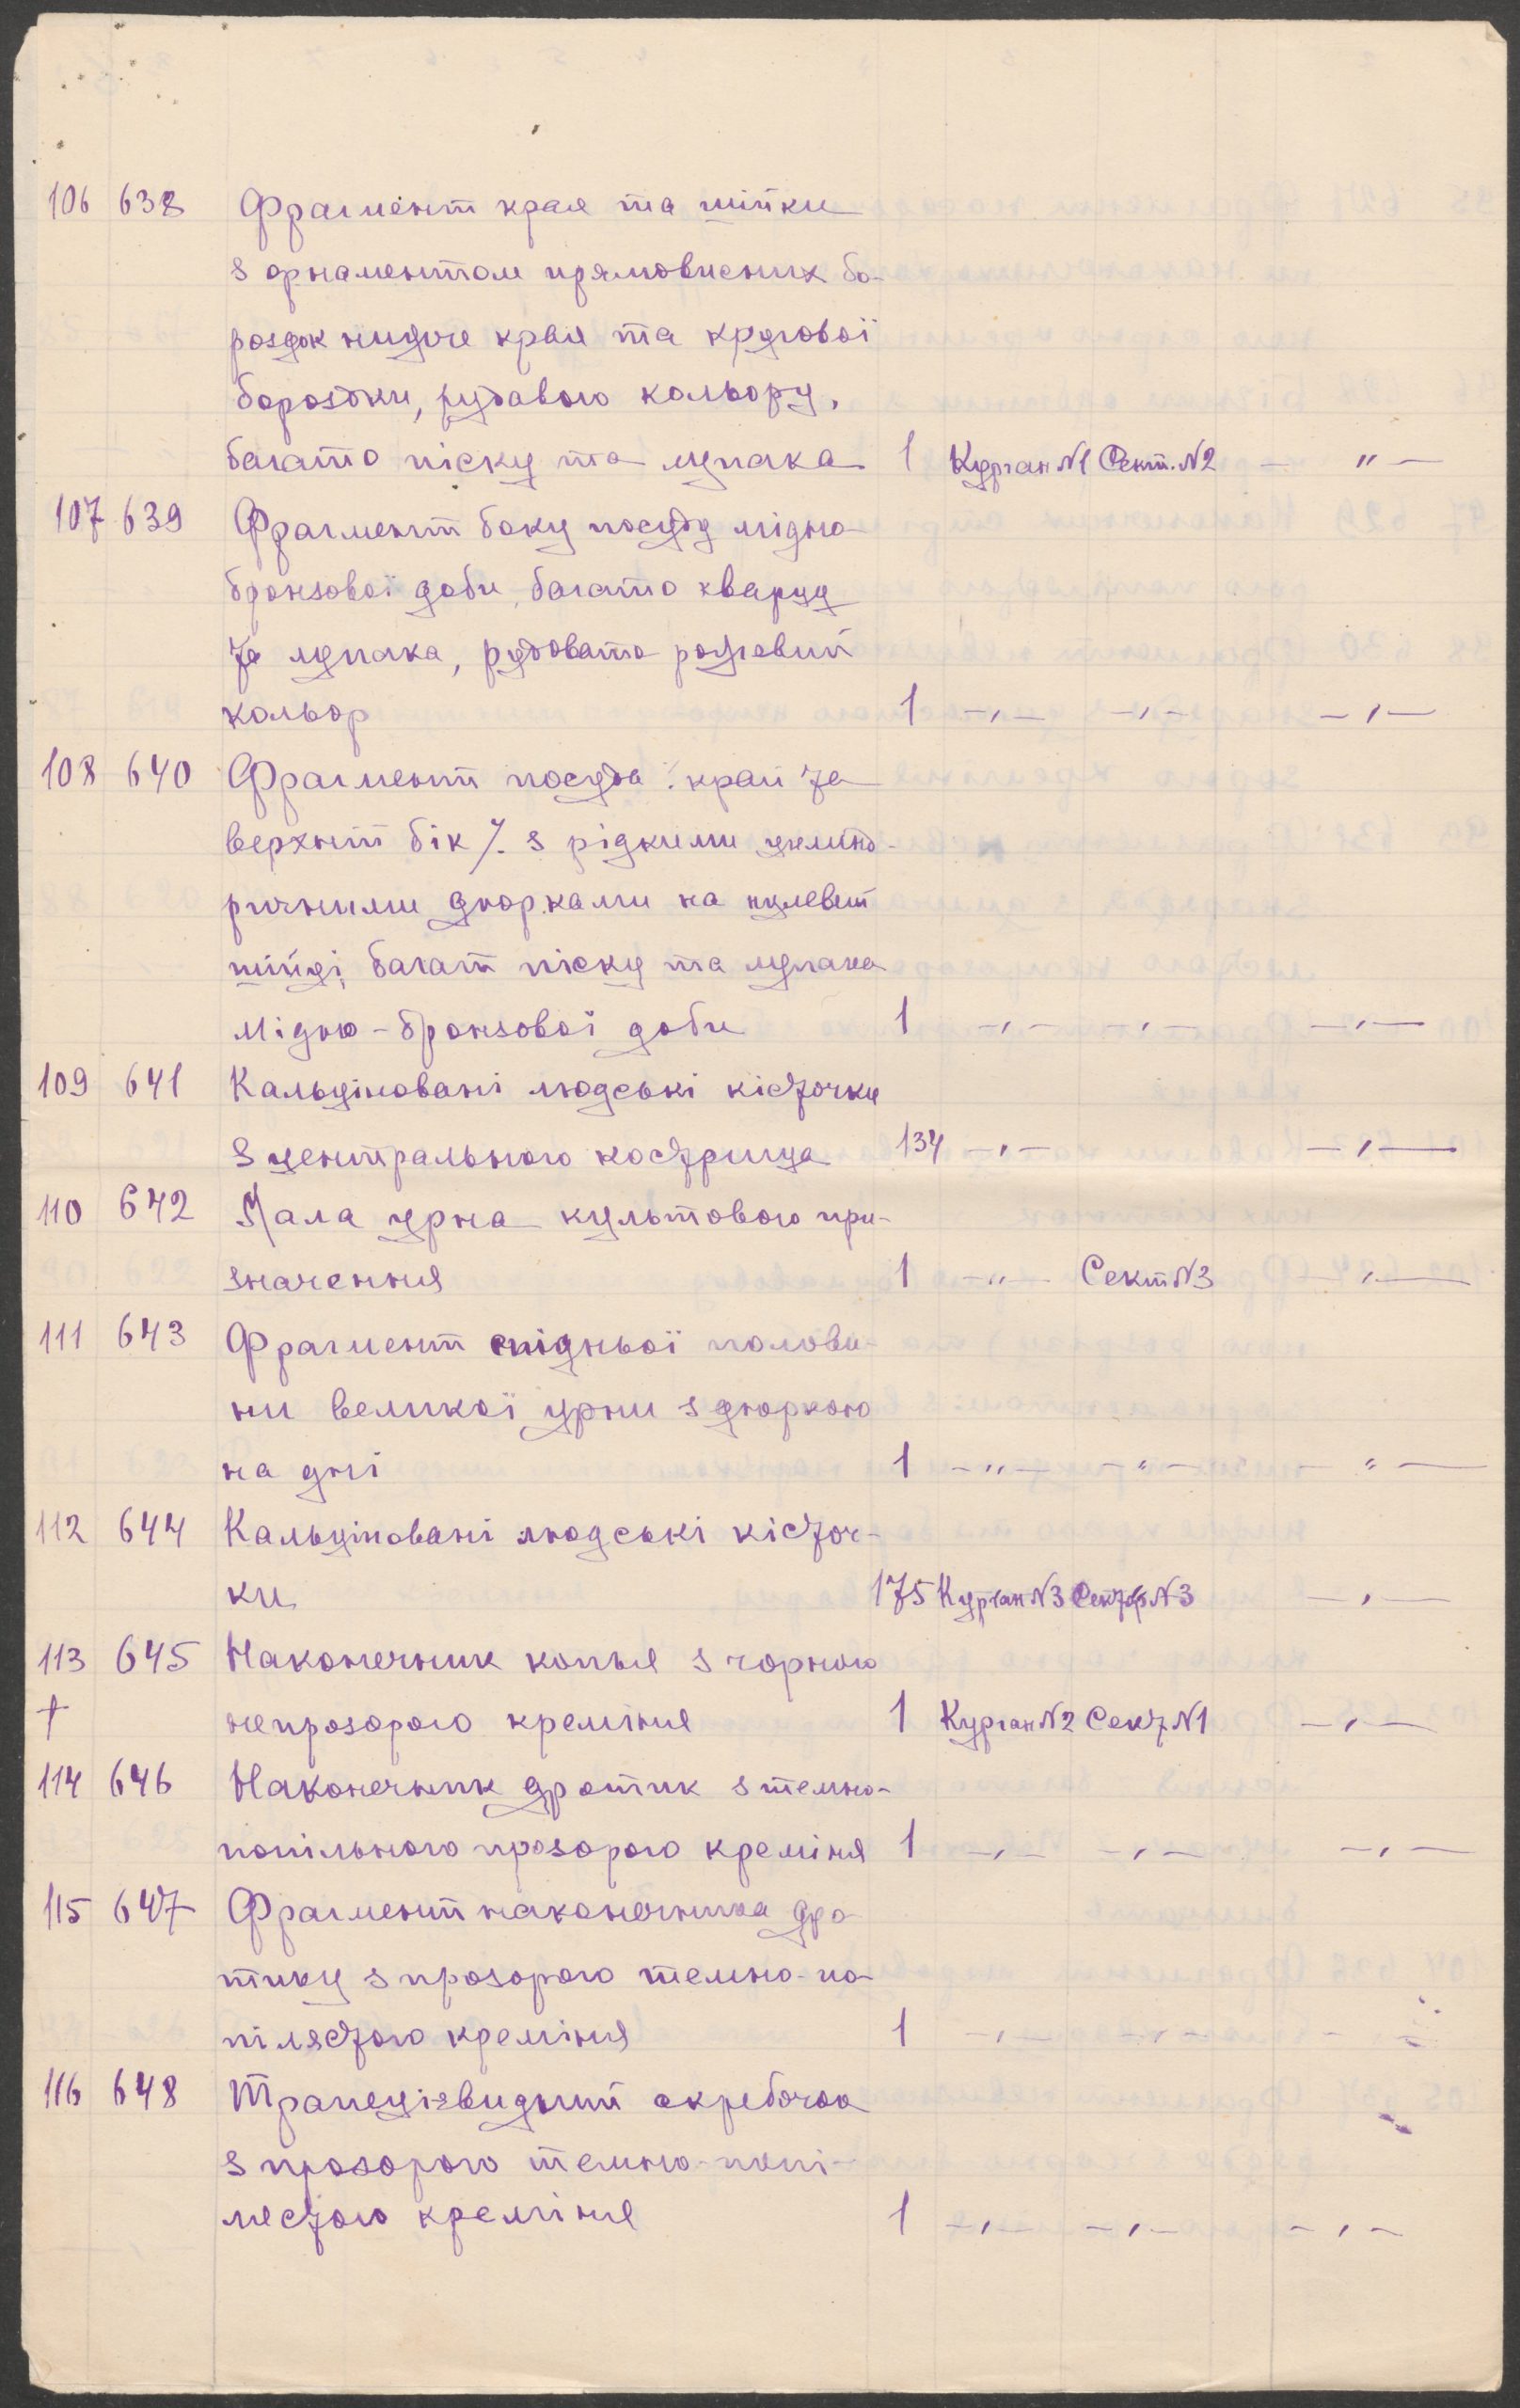 106 638 Фрагмент края та шійки
з орнаментом прямовисних бо-
роздок нидче края та кругової
бороздки, рудавого кольору,
багато піску та лупака 1 Курган N1 Сект. N2 — " —
107 639 Фрагмент боку посуду мідно-
бронзової доби, багато кварцу
та лупака, рудовато рожевий
кольор 1 —,— —,— —,—
108 640 Фрагмент посуда /: край та
верхній бік /. з рідкими цилинд-
ричними дюрками на
шийці, багат піску та лупака
мідно-бронзової доби 1 —,— —,— —,—
109 641 Кальціновані людські кісточки
з центрального кострища 134 —,— —,—
110 642 Мала урна культового при-
значення 1 —"— Сект N3 —,—
111 643 Фрагмент спідньої полови-
ни великої урни з дюркою
на дні 1 —"— —"— —"—
112 644 Кальціновані людські кісточ-
ки 175 Курган N3 Сект N3 —,—
113 645 Наконечник копья з чорного
† непрозорого креміня 1 Курган N2 Сект N1 —,—
114 646 Наконечник дротик з темно-
попільного прозорого креміня 1 —,— —,— —,—
115 647 Фрагмент наконечника дро-
тику з прозорого темно-по-
пілястого креміня 1 —,— —,— —,—
116 648 Трапеціевидний скребочок
з прозорого темно-попі-
лестого креміня 1 —,— —,— —,—